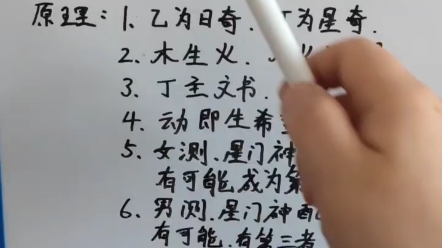 原理：1、乙为日奇、 为星奇.
2、木生火、
3、丁主文书.
4、动即生希
5、女测、星门神
有可能成为第
6、男测、星门神配
有可能有第三者